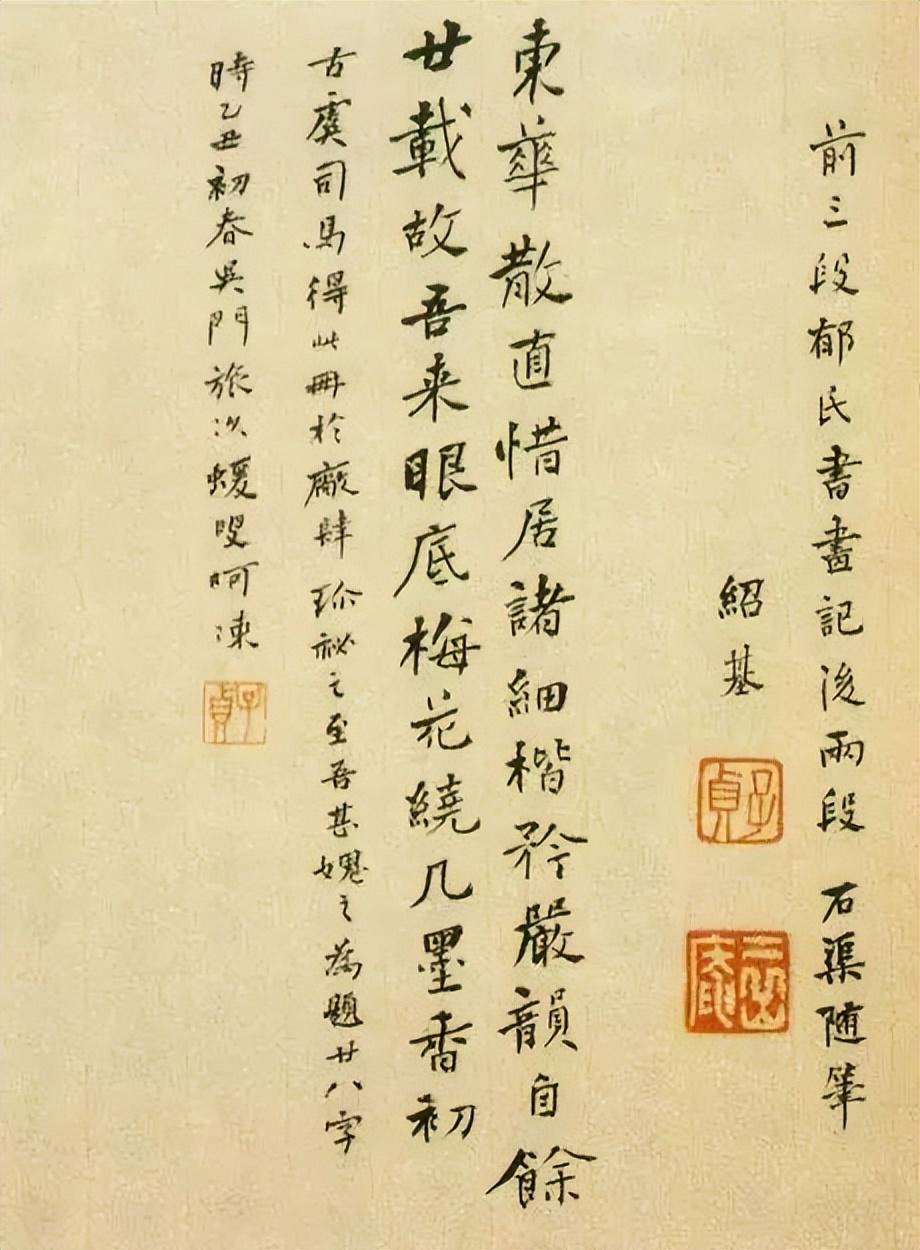 前三段郁氏書畫記後兩段 石渠随筆
紹基
子貞
東華散直惜居諸細楷矜嚴韻自餘
廿載故吾来眼底梅花繞几墨香初
古虞司馬得此冊於廠肆珎祕之至吾甚媿之為題廿八字
時乙丑初春吴門旅次蝯叟呵凍
子貞